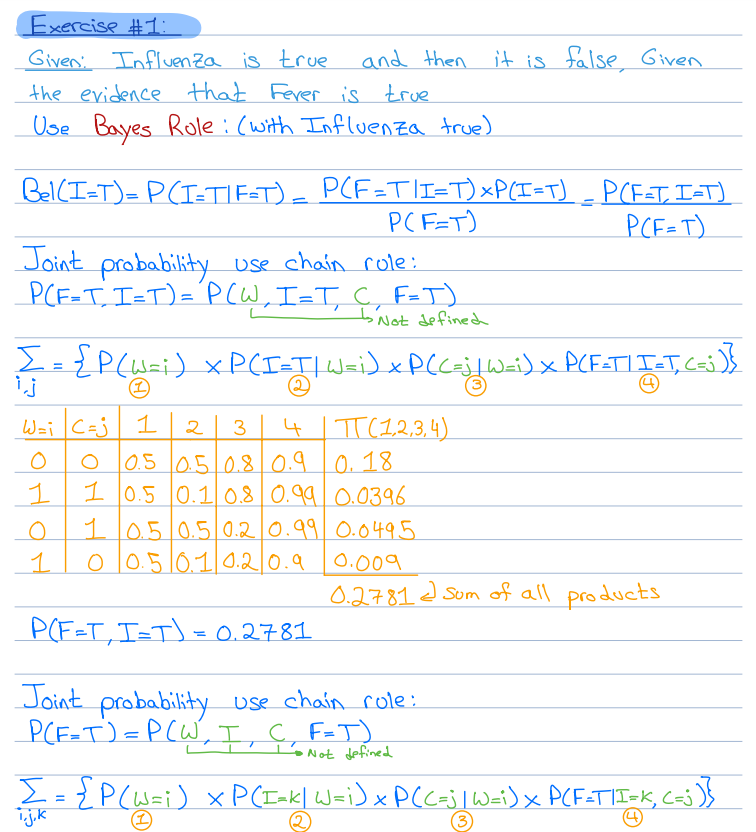 Exercise #1:
Given: Influenza is true and then it is false, Given
the evidence that Fever is true
Use Bayes Role: (with Influenza true)
Bel(I=T) = P(I=T|F=T) = P(F=T|I=T) × P(I=T) / P(F=T) = P(F=T, I=T) / P(F=T)
Joint probability use chain role:
P(F=T, I=T) = P(W, I=T, C, F=T)
Not defined
∑ i,j = { P(W=i) × P(I=T|W=i) × P(C=j|W=i) × P(F=T|I=T, C=j)}
① ② ③ ④
W=i C=j 1 2 3 4 Π(1,2,3,4)
0 0 0.5 0.5 0.8 0.9 0.18
1 1 0.5 0.1 0.8 0.99 0.0396
0 1 0.5 0.5 0.2 0.99 0.0495
1 0 0.5 0.1 0.2 0.9 0.009
0.2781 ↲ sum of all products
P(F=T, I=T) = 0.2781
Joint probability use chain role:
P(F=T) = P(W, I, C, F=T)
Not defined
∑ i,j,k = { P(W=i) × P(I=k|W=i) × P(C=j|W=i) × P(F=T|I=k, C=j)}
① ② ③ ④